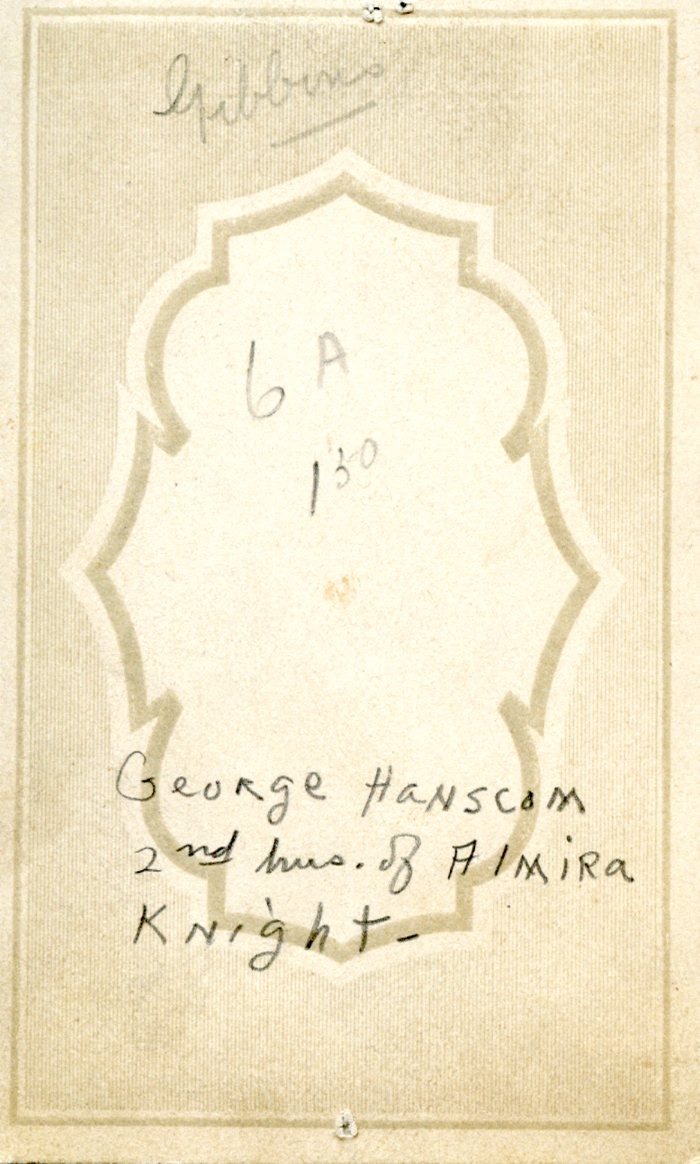 Gibbins
6 A
1 50
George Hanscom
2nd hus. of Almira
Knight -